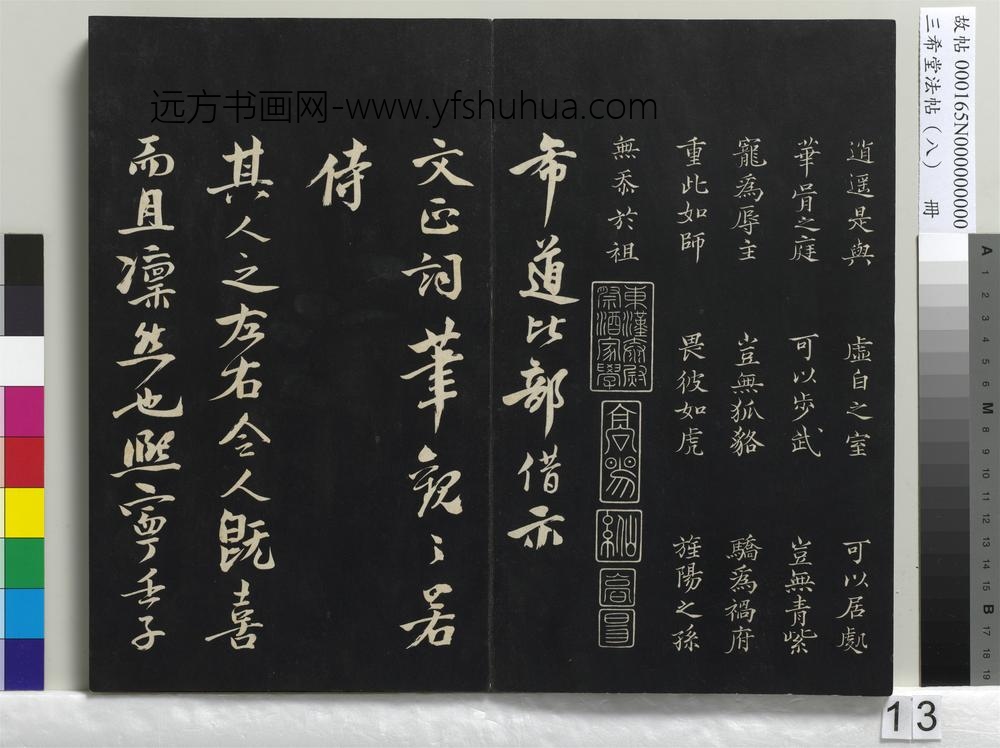 逍遥是與 虛白之室 可以居處
華胥之庭 可以步武 豈無青紫
寵為辱主 豈無狐貉 驕為禍府
重此如師 畏彼如虎 旌陽之孫
無忝於祖
東漢太尉祭酒家學
高陽
圖
希道比部借示
文正詞筆觀之若
侍
其人之左右令人既喜
而且凜然也熙寧壬子
远方书画网-www.yfshuhua.com
故帖 000165N000000000
三希堂法帖(八) 冊
A 1 2 3 4 5 6 M 8 9 10 11 12 13 14 15 B 17 18 19
13